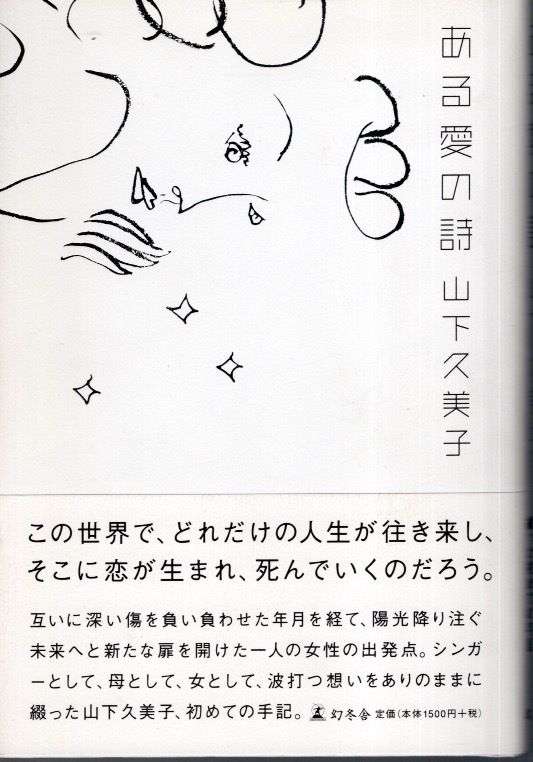 ある愛の詩
山下久美子
この世界で、どれだけの人生が往き来し、
そこに恋が生まれ、死んでいくのだろう。
互いに深い傷を負い負わせた年月を経て、陽光降り注ぐ
未来へと新たな扉を開けた一人の女性の出発点。シンガ
ーとして、母として、女として、波打つ想いをありのままに
綴った山下久美子、初めての手記。 幻冬舎 定価(本体1500円+税)